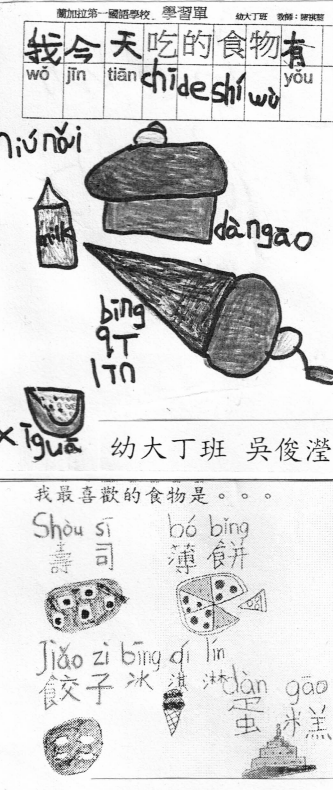 蘭加拉第一國語學校 學習單 幼大丁班
我今天吃的食物有
wǒ jīn tiān chī de shí wù yǒu
niú nǎi
milk
dàngāo
bīng
qī
līn
xīguā
幼大丁班 吳俊瀅
我最喜歡的食物是。。。
Shòu sī bó bǐng
壽司 薄餅
Jiǎo zi bīng qí lín
餃子 冰淇淋
dàn gāo
蛋糕